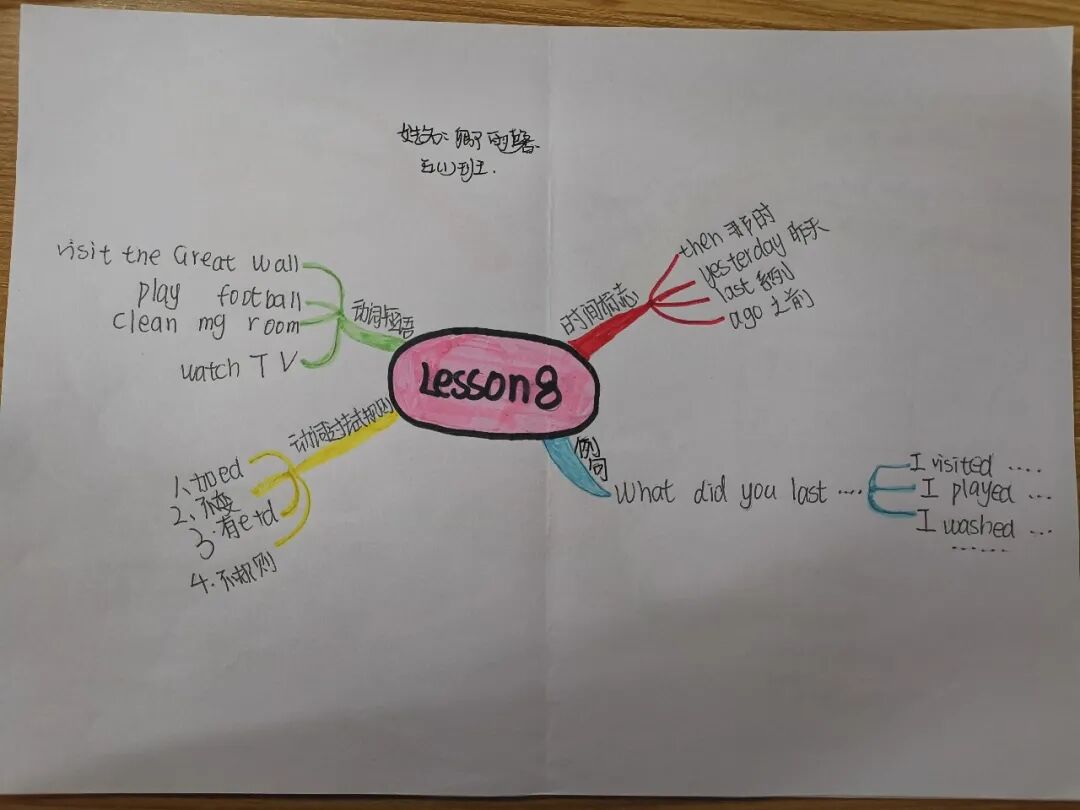 姓名:
五(1)班.
visit the Great Wall
play football
clean my room
watch TV
动词短语
then 那时
yesterday 昨天
last 系列
ago 之前
时间标志
Lesson 8
动词过去式规则
1.加ed
2.不变
3.有e+d
4.不规则
例句
What did you last ....
I visited ....
I played ...
I washed ...
......